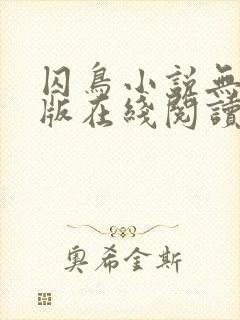 囚鳥小説無
版在綫閲讀
奧希金斯